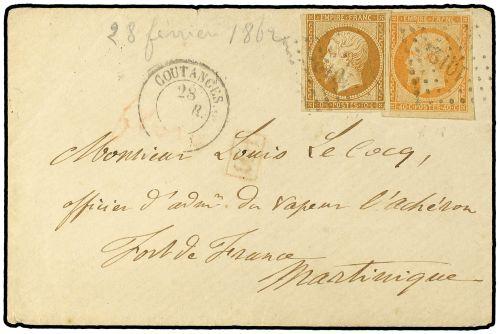 28 février 1862
COUTANGES
28
EMPIRE FRANC
10 C POSTES 10 C
EMPIRE FRANC
40 C POSTES 40 C
Monsieur Louis LeCocq,
officier d'admon du vapeur l'achéron
Fort de France
Martinique